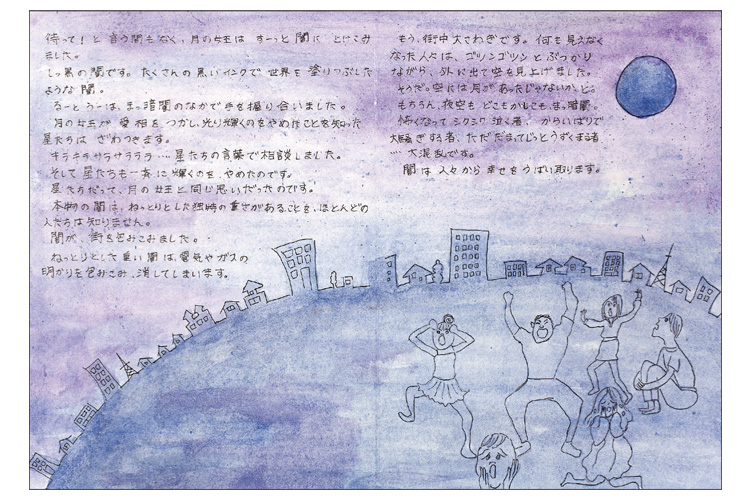 待って！と言う間もなく、月の女王は すーっと 闇に とけこみ
ました。
しっ黒の闇です。たくさんの黒いインクで 世界を 塗りつぶした
ような 闇。
るーとうーは、まっ暗闇のなかで手を握り合いました。
月の女王が 愛想をつかし、光り輝くのをやめたことを知った
星たちは ざわつきます。
キラキラサラサラララ…星たちの言葉で相談しました。
そして星たちも一斉に輝くのを、やめたのです。
星たちだって、月の女王と同じ思いだったのです。
本物の闇は、ねっとりとした独特の重さがあることを、ほとんどの
人たちは知りません。
闇が、街を包みこみました。
ねっとりとした重い闇は、電気やガスの
明かりを包みこみ、消してしまいます。
もう、街中大さわぎです。何も見えなく
なった人々は、ゴツンゴツンとぶつかり
ながら、外に出て空を見上げました。
そうだ。空には月があったじゃないか、と。
もちろん、夜空も どこもかしこも、まっ暗闇。
怖くなって シクシク泣く者、からいばりで
大騒ぎする者、ただだまってじっとうずくまる者
… 大混乱です。
闇は人々から幸せをうばい取ります。